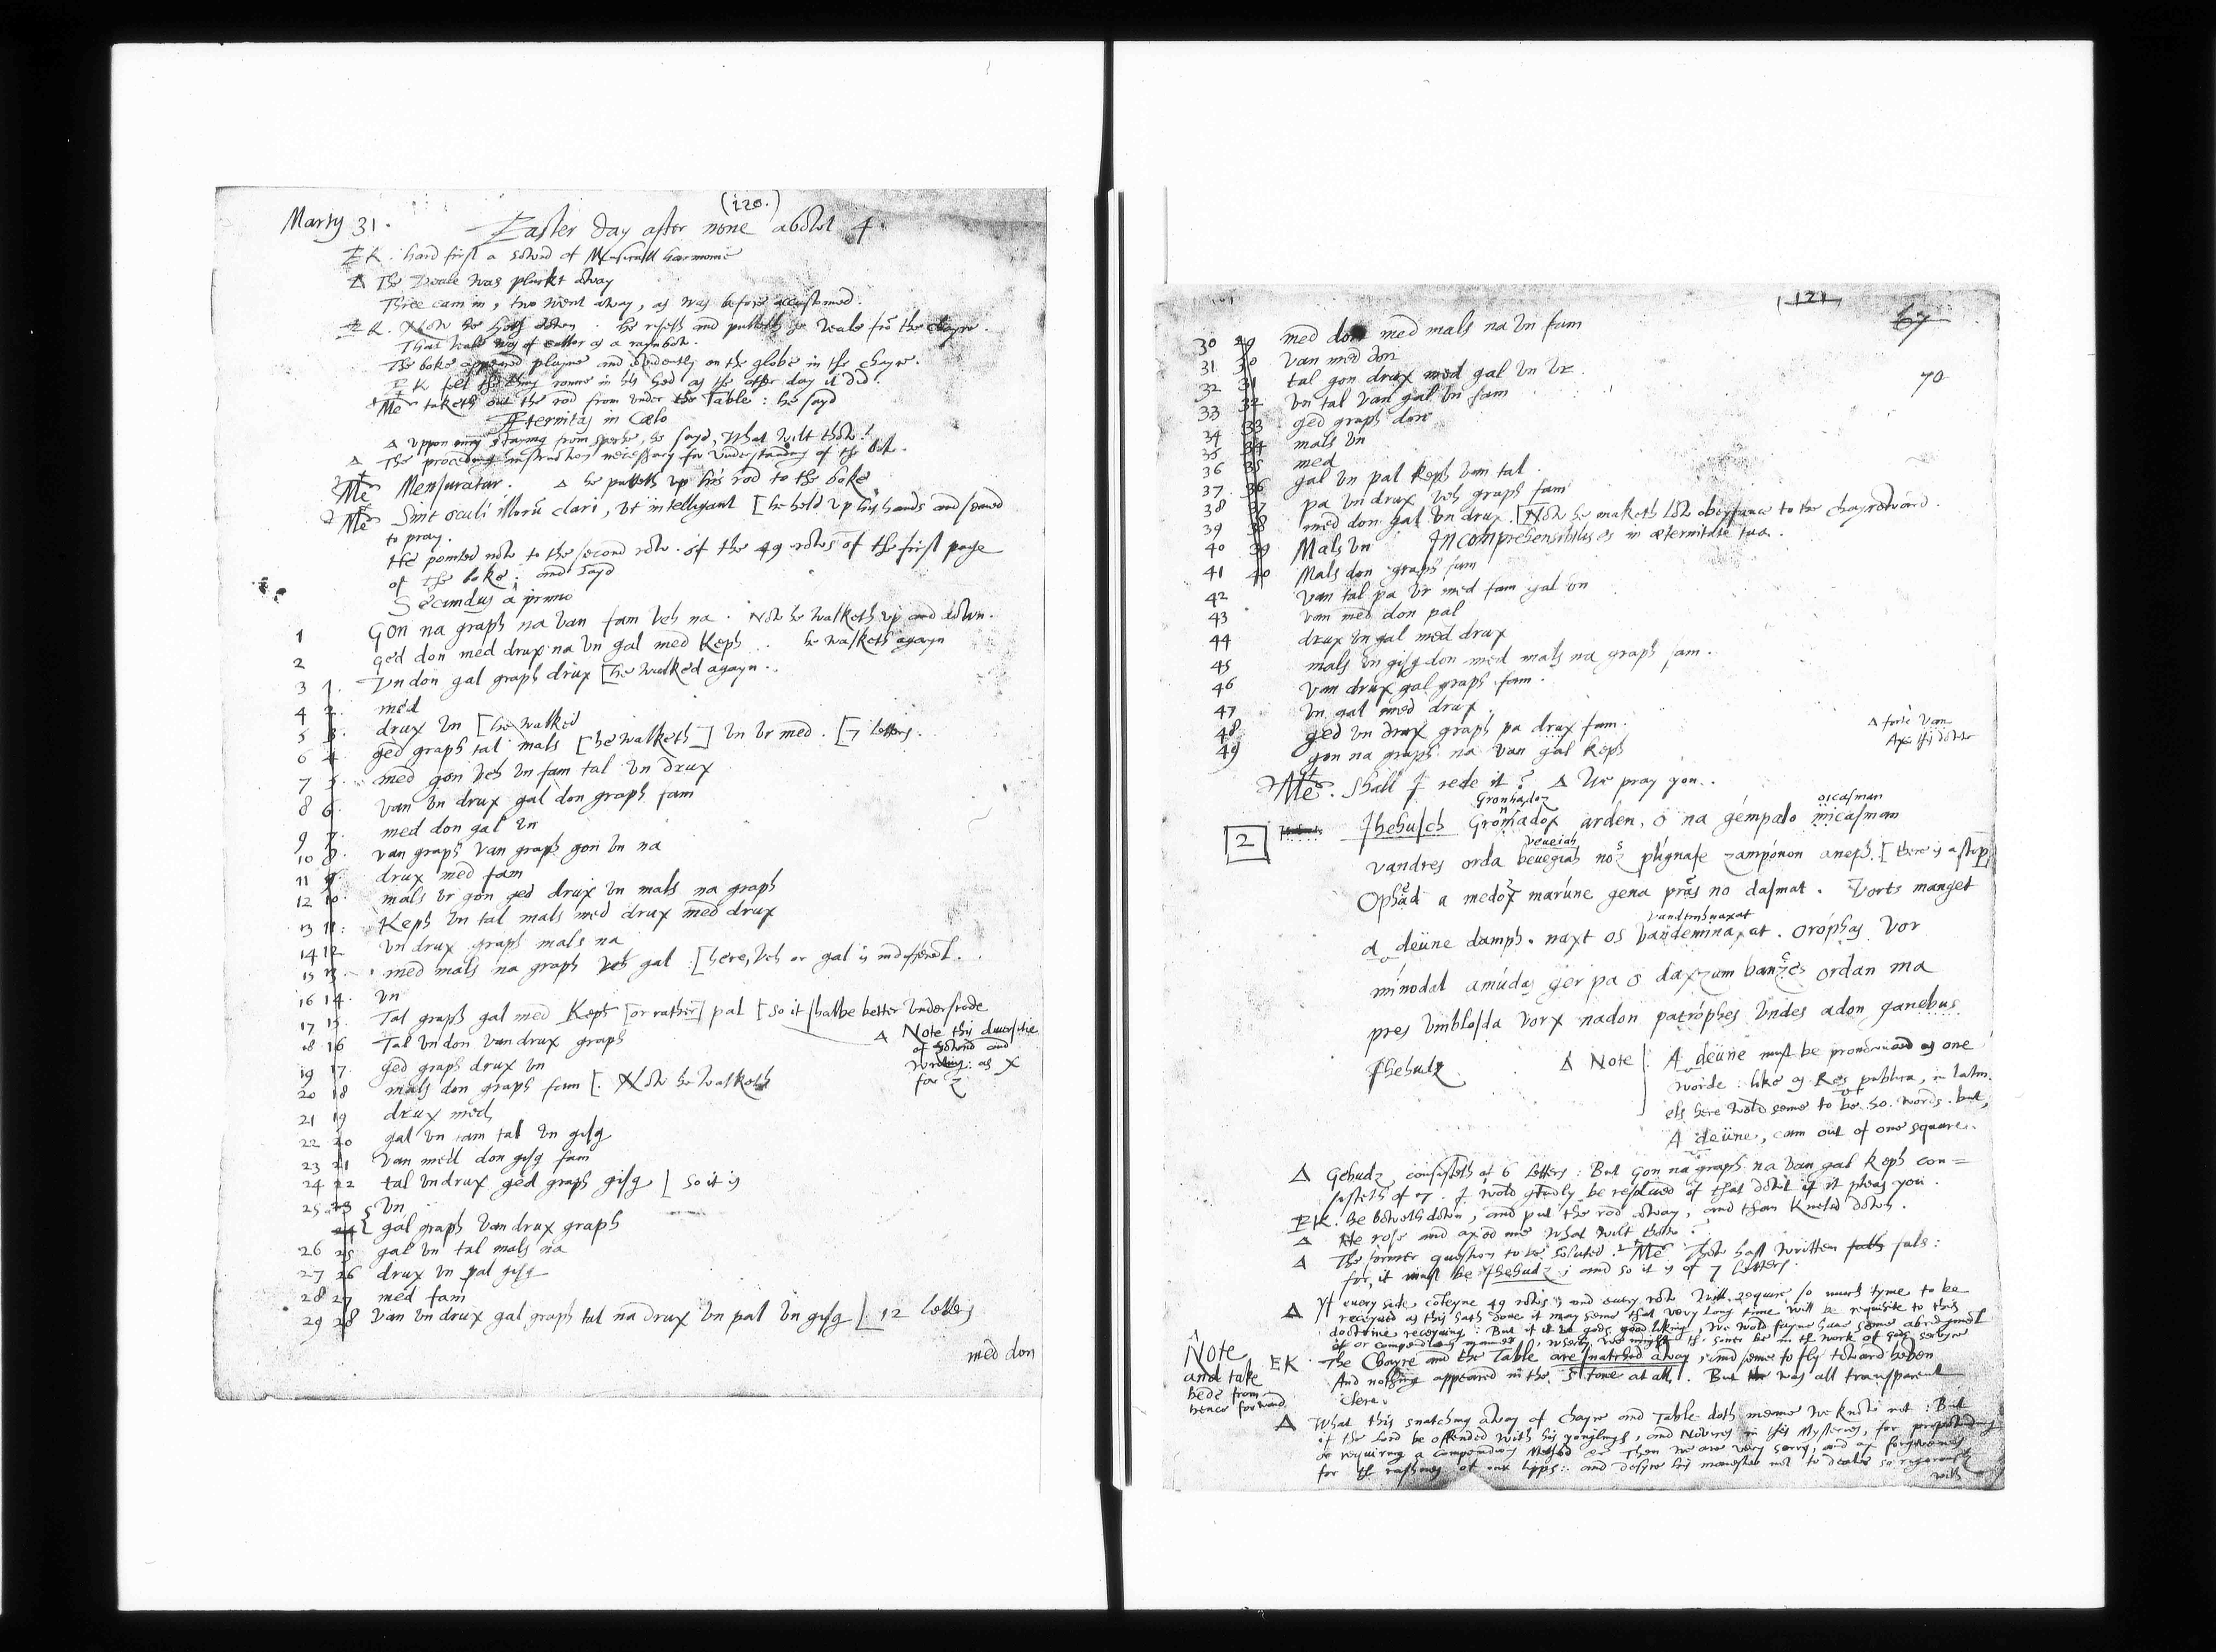 (120.)
Martij 31. Easter day after none abowt 4.
EK. hard first a sownd of Musicall harmonie
Δ The Veale was pluckt away
Three cam in, two went away, as was before accustomed.
EK. Now he helth down. he riseth and putteth ye veale frō the chayre.
That veale was of cullor as a raynbow.
The boke appeared playne and evidently on the globe in the chayre.
EK felt the thing ronne in his hed as the other day it did.
Me taketh out the rod from under the Table: he sayd
Æternitas in Cælo
Δ uppon my staying from speche, he sayd, What wilt thow?
Δ The proceding instruction necessary for understanding of the boke.
Me Mensuratur. Δ he putteth up his rod to the boke
Me Sint oculi illorū clari, ut intelligant [he held up his hands and semed
to pray.
He pointed now to the second row. of the 49 rowes of the first page
of the boke; and sayd
Secundus a primo
1 Gon na graph na van fam veh na. Now he walketh up and down.
2 ged don med drux na un gal med keph. he walketh agayn
3 1. Un don gal graph drux [he walked agayn.
4 2. med
5 3. drux un [he walked
6 4. ged graph tal mals [he walketh] un ur med. [7 letters.
7 5. med gon veh un fam tal un drux
8 6. van un drux gal don graph fam
9 7. med don gal un
10 8. van graph van graph gon un na
11 9. drux med fam
12 10. mals ur gon ged drux un mals na graph
13 11: Keph un tal mals med drux med drux
14 12 un drux graph mals na
15 13. med mals na graph veh gal [here, veh or gal is indifferent.
16 14. un
17 15. Tal graph gal med Keph [or rather] pal [so it shalbe better understode
Δ Note this diversitie
of sownd and
writing: as X
for z
18 16 Tal un don van drux graph
19 17. ged graph drux un
20 18 mals don graph fam [. Now he walketh
21 19 drux med
22 20 gal un fam tal un gisg
23 21 van med don gisg fam
24 22 tal un drux ged graph gisg [so it is
25 23 un
24 gal graph van drux graph
26 25 gal un tal mals na
27 26 drux un pal gisg
28 27 med fam
29 28 van un drux gal graph tal na drux un pal un gisg [12 letters
med don
(121)
67
70
30 29 med don med mals na un fam
31 30 van med don
32 31 tal gon drux med gal un ur
33 32 un tal van gal un fam
34 33 ged graph don
35 34 mals un
36 35 med
37 36 gal un pal keph van tal.
38 37 pa un drux veh graph fam
39 38 med don gal un drux. [Now he maketh low obeysance to the chayreward.
40 39 Mals un Incomprehensibilis es in æternitate tua.
41 40 Mals don graph fam
42 van tal pa ur med fam gal un
43 van med don pal
44 drux un gal med drux
45 mals un gisg don med mals na graph fam.
46 van drux gal graph fam.
47 un gal med drux.
48 ged un drux graph pa drux fam.
49 gon na graph na van gal keph
Δ forte Van
Me. Shall I rede it? Δ We pray you.
2 Ihehusch Gronhadox arden, o na gémpalo micasman
Gronhadoz
oicasman
vandres orda bevegiah noz plignase zampónon aneph. [there is a stop
veveiah
Ophad a medox marúne gena pras no dasmat. Vorts manget
a deüne damph. naxt os vandeminaxat. Orophas vor
vandemhnaxat
mínodal amúdas ger pa o daxzum banzes ordan ma
pres umblosda vorx nadon patróphes undes adon ganebus
Ihehudz Δ Note A deüne must be pronownced as one
worde: like as Res publica, in latin
els here wold seme to be 50. words. but,
A deüne, cam out of one square.
Δ Gehudz consisteth of 6 letters: But Gon na graph na van gal keph con=
sisteth of 7. I wold gladly be resolved of that dowt if it pleas you.
EK. he boweth down, and put the rod away, and than kneled down.
Δ He rose and axed me What wilt thow?
Δ The former question to be soluted. Me Thow hast written fals:
for, it must be Ihehudz; and so it is of 7 letters.
Δ Yf every side conteyne 49 rowes, and every row will require so much tyme to be
receyved as this hath done it may seme that very long time will be requisite to this
doctrine receyving: But if it be gods good liking, we wold fayne have some abridgment
or compendious manner, wherby we might the soner be in the work of gods servyce
Note
and take
hede from
hence forward.
EK. The Chayre and the Table are snatched away and seme to fly toward heven
And nothing appeared in the Stone at all. But was all transparent
clere.
Δ What this snatching away of chayre and Table doth meane we know not: But
if the lord be offended with his yonglings, and Novices in this Mysteries, for propownding
or requiring a compendious Method &c Then we are very sorry, and ax forgivenes
for the rashnes of our lipps: and desyre his maiestie not to deale so rigorously
with